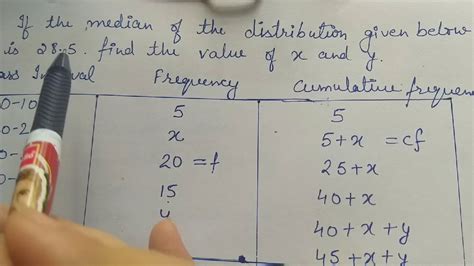 If the median of the distribution given below
is 28.5. find the value of x and y.
ass Interval Frequency Cumulative frequen
0-10 5 5
0-2 x 5+x = cf
0- 20 = f 25+x
15 40+x
y 40+x+y
45+x+y